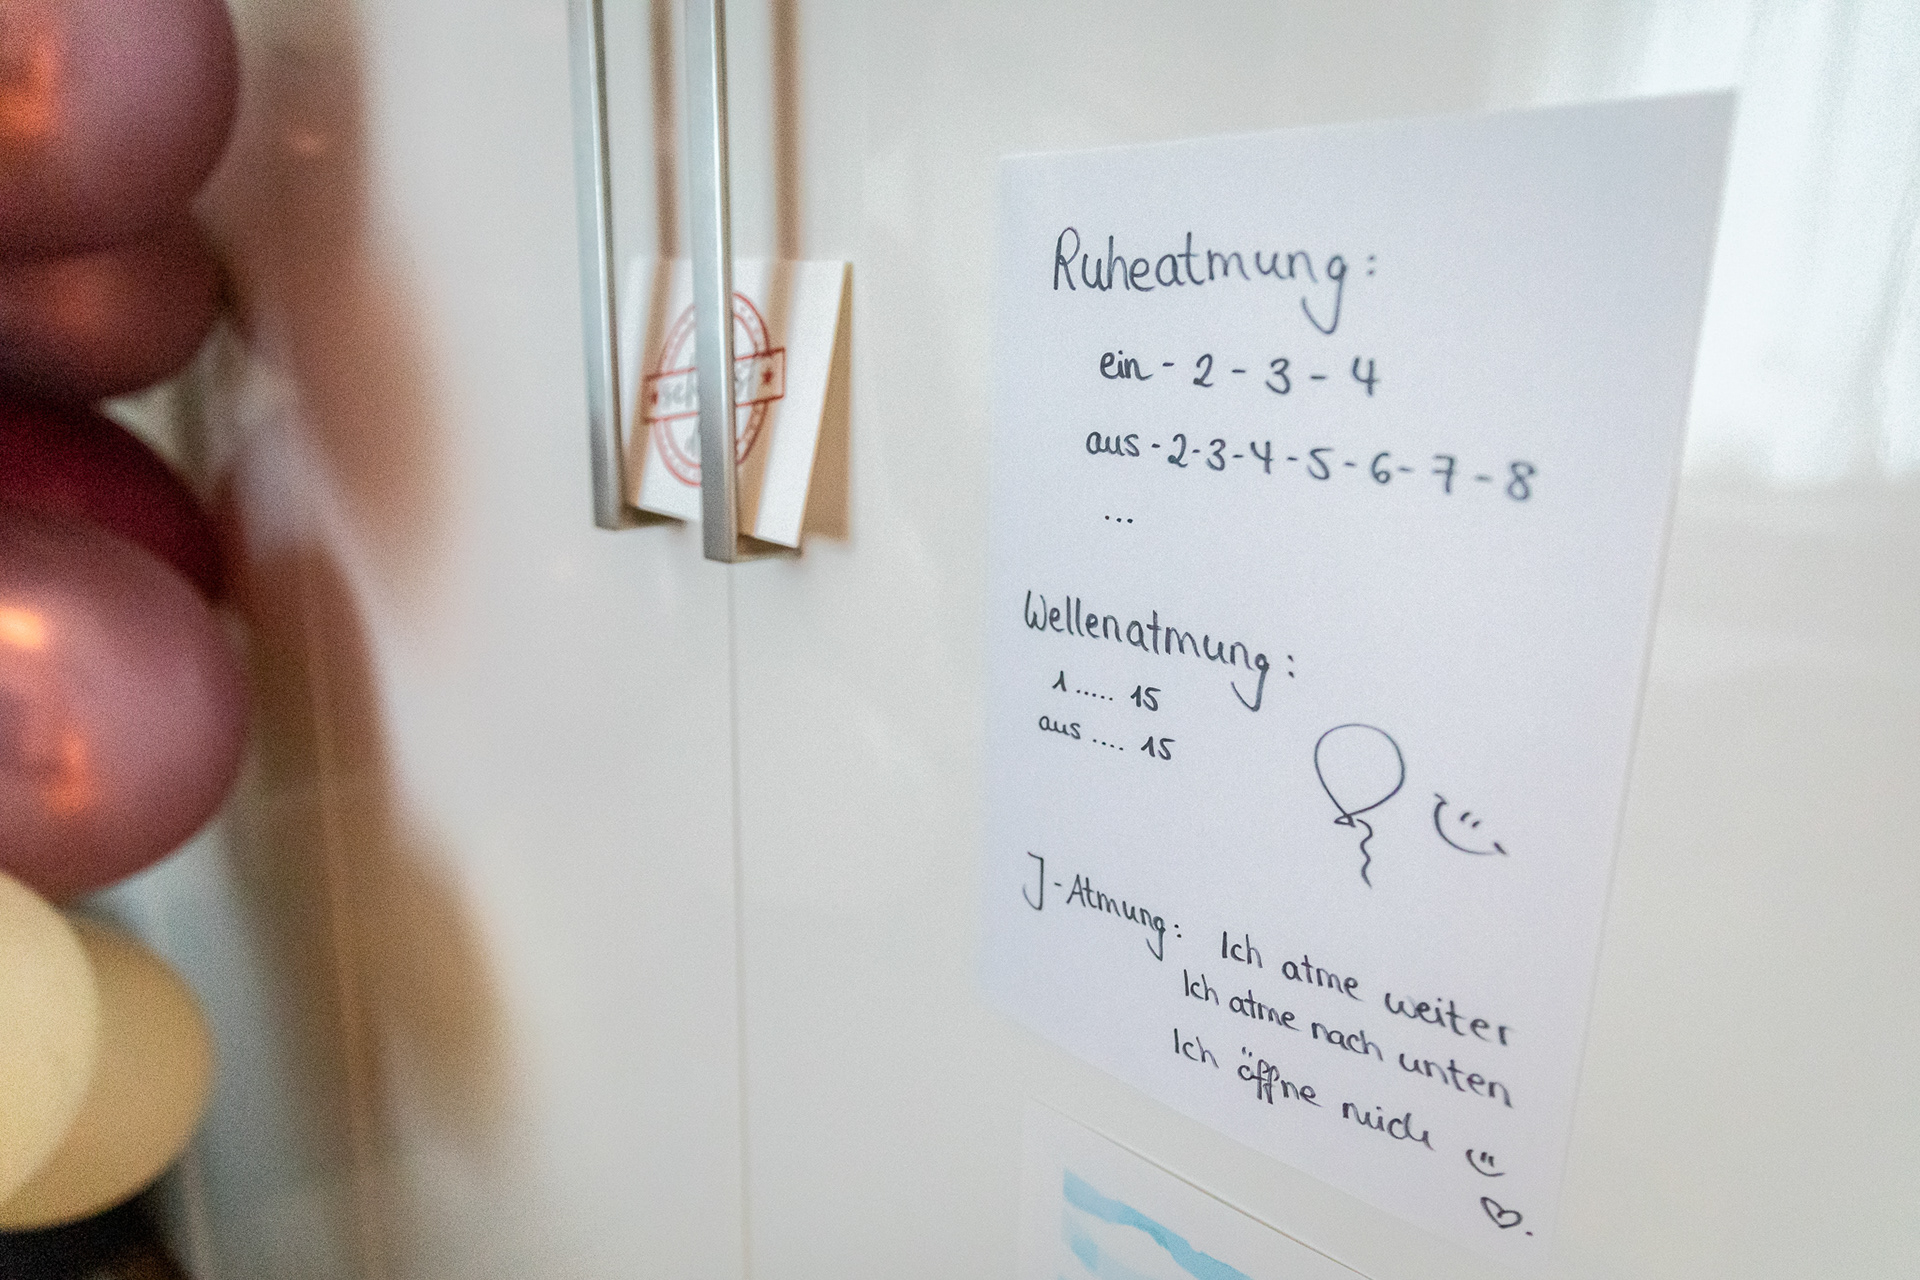 Ruheatmung:
ein - 2 - 3 - 4
aus - 2 - 3 - 4 - 5 - 6 - 7 - 8
...
Wellenatmung:
1 ..... 15
aus .... 15
J-Atmung: Ich atme weiter
Ich atme nach unten
Ich öffne mich